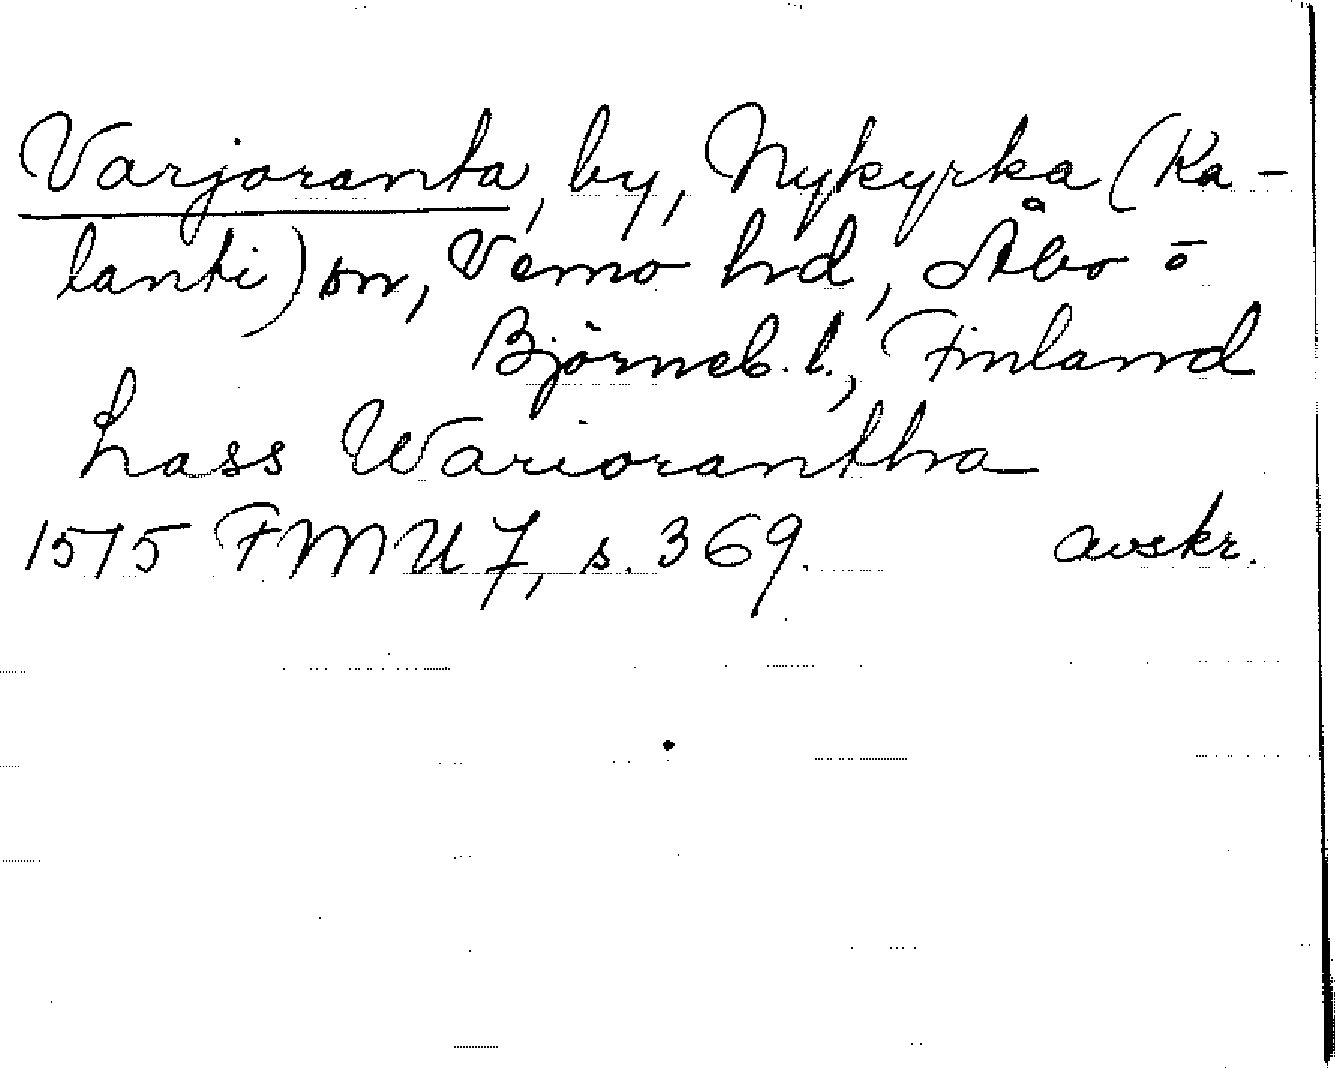 Varjoranta, by, Nykyrka (Ka-
lanti) sn, Vemo hd, Åbo o
Björneb. l., Finland
Lass Wariorantha
1575 FMU 7, s. 369. avskr.